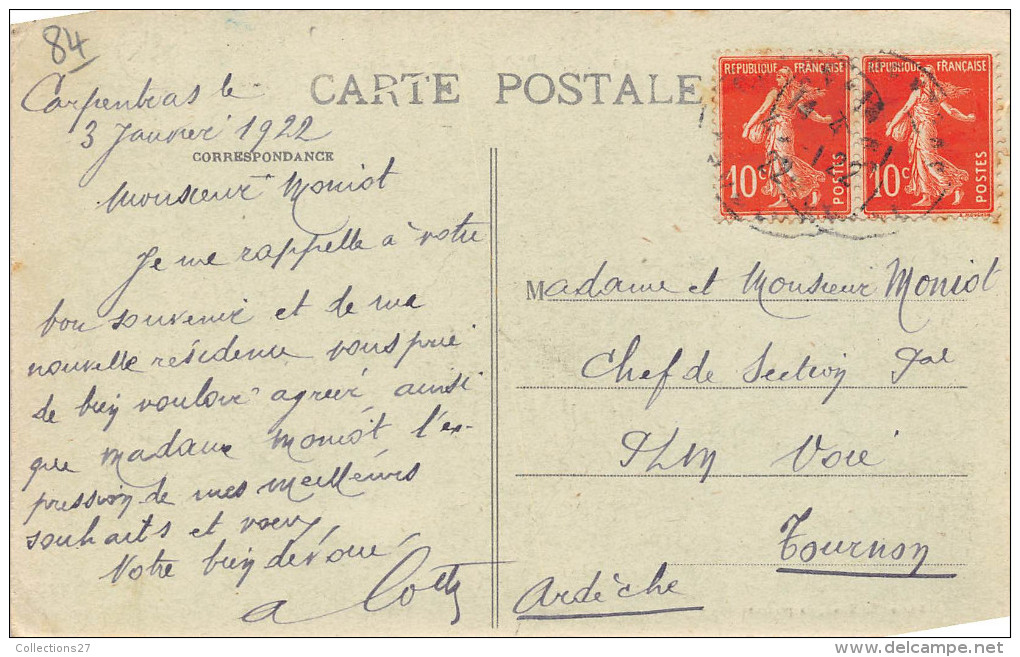 84
Carpentras le
3 Janvier 1922
CARTE POSTALE
CORRESPONDANCE
Monsieur Moniot
Je me rappelle à votre
bon souvenir et de ma
nouvelle résidence vous prie
de bien vouloir agréer ainsi
que Madame Moniot l'ex-
pression de mes meilleurs
souhaits et voeux
Votre bien dévoué
RÉPUBLIQUE FRANÇAISE
10c
POSTES
RÉPUBLIQUE FRANÇAISE
10c
POSTES
Madame et Monsieur Moniot
Chef de Section Pal
PLM Voie
Tournon
Ardèche
Collections27
delcampe.net